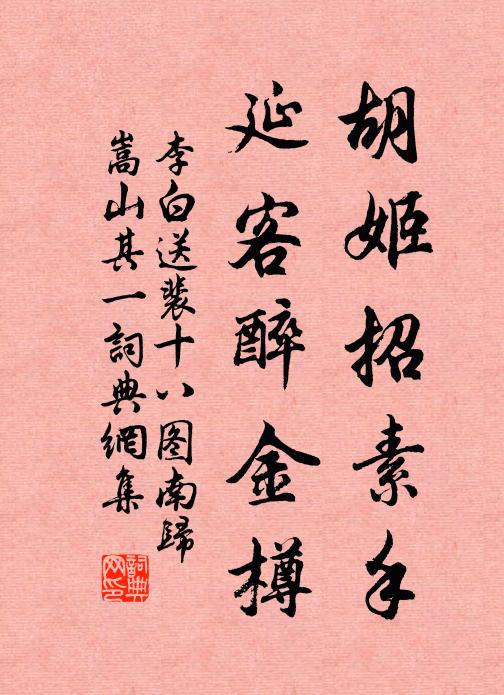 胡姬招素手
延客醉金樽
李白送裴十八图南歸
嵩山其一詞典網集
詞典
网印